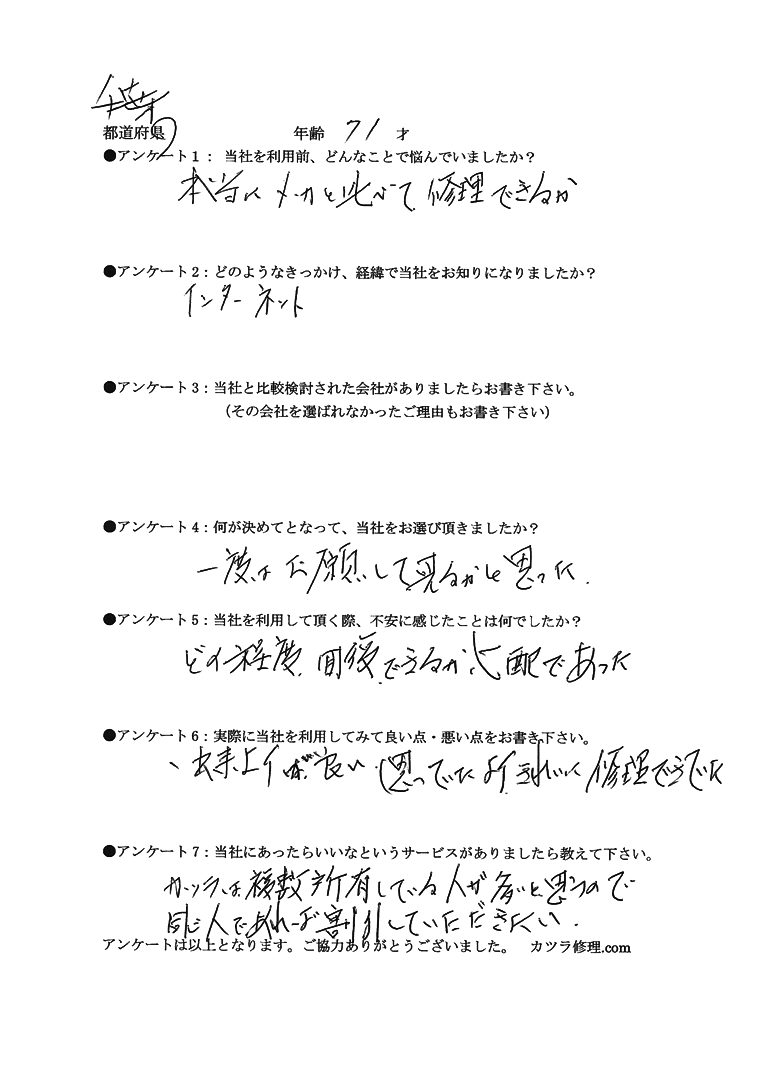 千葉
都道府県 年齢 71 才
●アンケート1： 当社を利用前、どんなことで悩んでいましたか？
本当にメーカと比べて修理できるか
●アンケート2：どのようなきっかけ、経緯で当社をお知りになりましたか？
インターネット
●アンケート3：当社と比較検討された会社がありましたらお書き下さい。
（その会社を選ばれなかったご理由もお書き下さい）
●アンケート4：何が決めてとなって、当社をお選び頂きましたか？
一度はお願いして見るかと思った.
●アンケート5：当社を利用して頂く際、不安に感じたことは何でしたか？
どの程度、回復できるか心配であった
●アンケート6：実際に当社を利用してみて良い点・悪い点をお書き下さい。
、出来上りが良い 思っていたよりきれいに修理できていた
●アンケート7：当社にあったらいいなというサービスがありましたら教えて下さい。
カツラは複数所有している人が多いと思うので
同じ人であればお割引していただきたい.
アンケートは以上となります。ご協力ありがとうございました。 カツラ修理.com